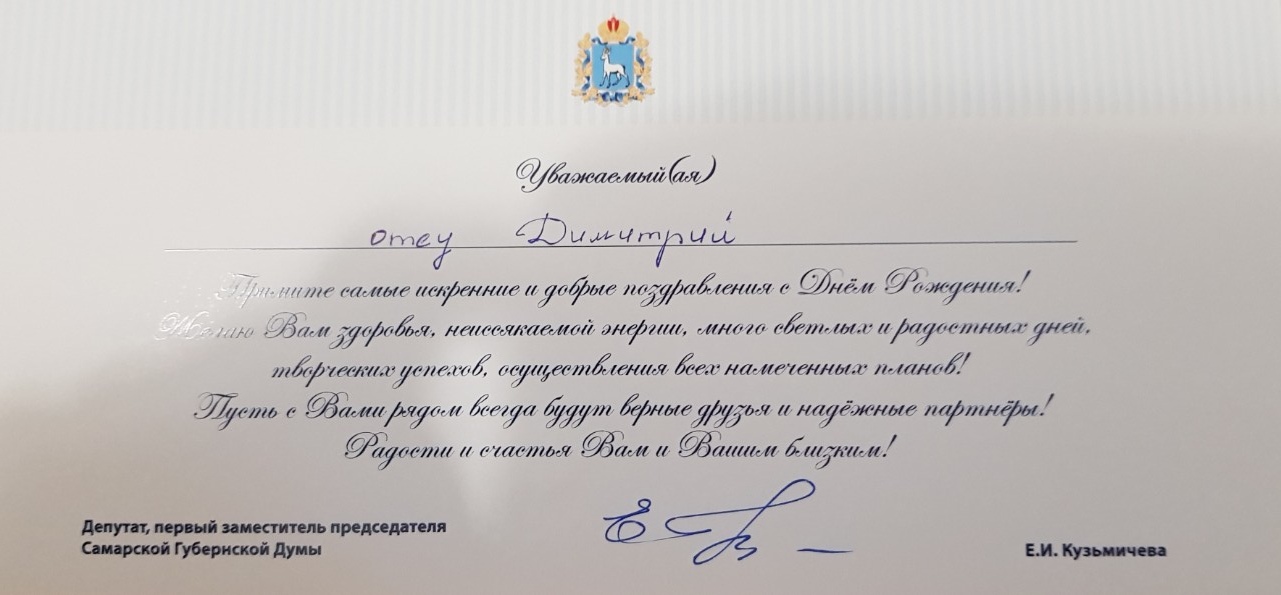 Уважаемый(ая)
отец Димитрий
Примите самые искренние и добрые поздравления с Днём Рождения!
Желаю Вам здоровья, неиссякаемой энергии, много светлых и радостных дней,
творческих успехов, осуществления всех намеченных планов!
Пусть с Вами рядом всегда будут верные друзья и надёжные партнёры!
Радости и счастья Вам и Вашим близким!
Депутат, первый заместитель председателя
Самарской Губернской Думы
Е.И. Кузьмичева